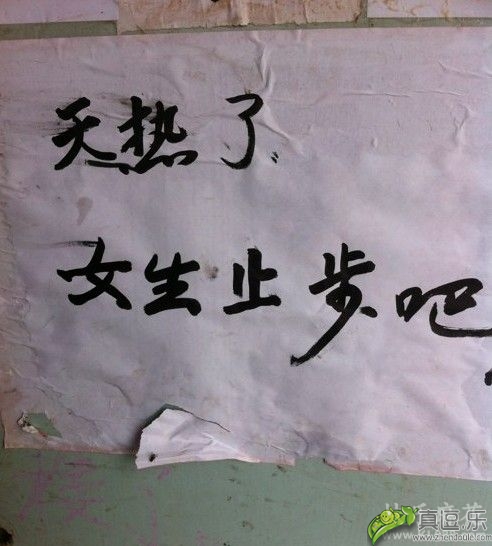 天热了
女生止步吧
真逗乐
www.zhendoule.com